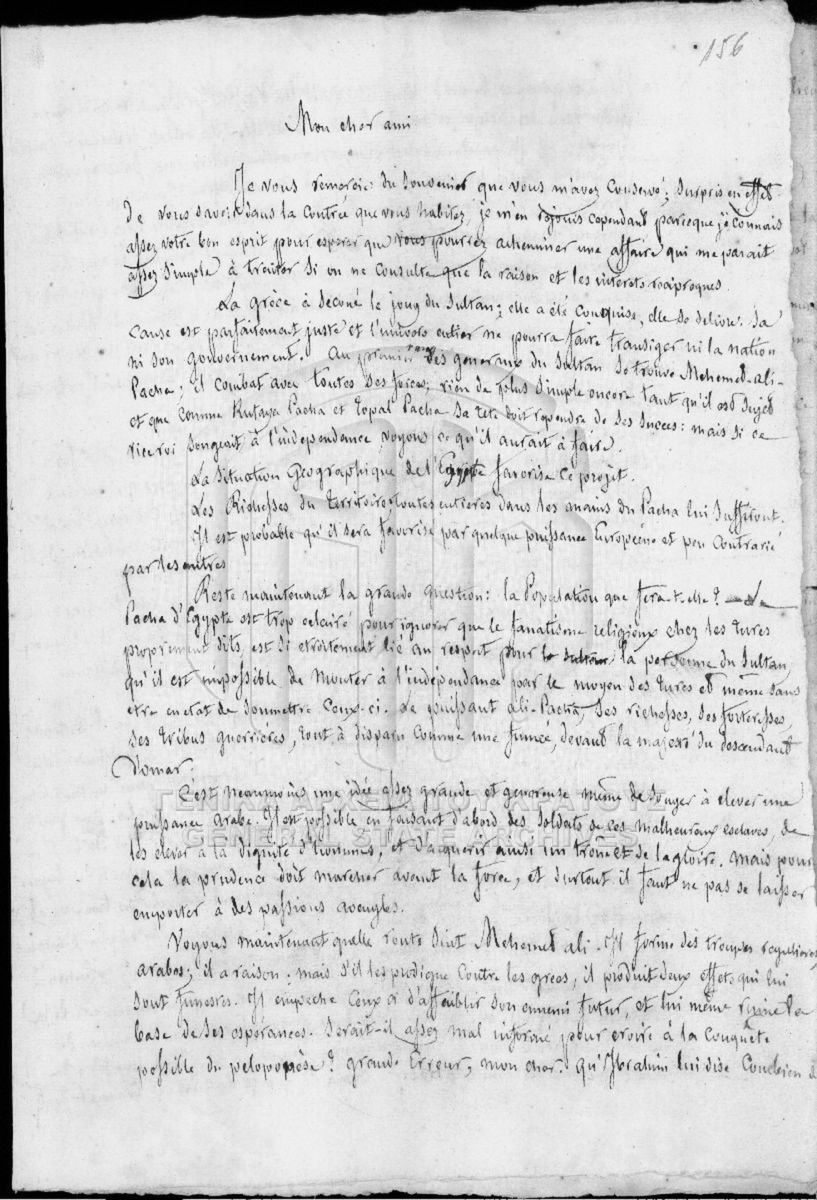 156
Mon cher ami
Je vous remercie du souvenir que vous m'avez conservé; surpris en effet
de vous savoir dans la contrée que vous habitez je m'en rejouis cependant parceque je connais
assez votre bon esprit pour esperer que vous pourrez acheminer une affaire qui me parait
assez simple à traiter si on ne consulte que la raison et les interets reciproques.
La grèce à secoué le joug du Sultan; elle a été conquise, elle se delivre. Sa
cause est parfaitement juste et l'univers entier ne pourra faire transiger ni la nation
ni son gouvernement. Au premier rang des generaux du Sultan se trouve Mehemed-Ali-
Pacha; il combat avec toutes ses forces; rien de plus simple encore tant qu'il est sujet
et que comme Pacha et Topal Pacha sa tete doit repondre de ses succes: mais si ce
viceroi songeait à l'independance voyons ce qu'il aurait à faire.
La situation Geographique de l'Egypte favorise ce projet.
Les Richesses du territoire toutes entieres dans les mains du Pacha lui suffiront.
Il est probable qu'il sera favorisé par quelque puissance Européene et peu contrarié
par les autres
Reste maintenant la grande question: la Population que fera-t-elle? Le
Pacha d'Egypte est trop eclairé pour ignorer que le fanatisme religieux chez les turcs
proprement dits est si etroitement lié au respect pour le sultan la personne du Sultan,
qu'il est impossible de monter à l'indépendance par le moyen des turcs et même sans
etre en etat de soumettre ceux-ci. Le puissant Ali-Pacha, ses richesses, ses forteresses,
ses tribus guerrières, tout à disparu comme une fumee, devant la majesté du descendant
d'omar.
C'est neanmoins une idée assez grande et genereuse même de songer à elever une
puissance arabe. Il est possible en faisant d'abord des soldats de ces malheureux esclaves, de
les elever à la dignité d'hommes, et d'acquerir ainsi un trône et de la gloire. mais pour
cela la prudence doit marcher avant la force, et surtout il faut ne pas se laisser
emporter à des passions aveugles.
Voyons maintenant quelle route suit Mehemet ali. Il forme des troupes regulieres
arabes; il a raison; mais s'il les prodigue contre les grecs, il produit deux effets qui lui
sont funestes. Il empeche ceux ci d'affaiblir son ennemi futur, et lui même ruine la
base de ses espérances. Serait-il assez mal informé pour croire à la conquête
possible du peloponèse? grande Erreur, mon cher. qu'Ibrahim lui dise Combien